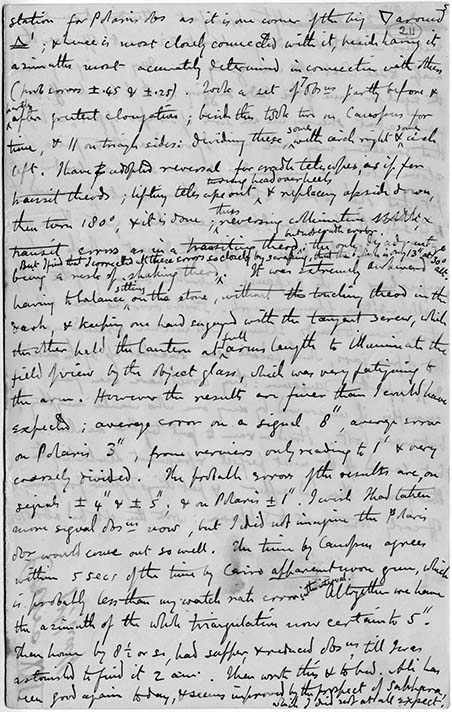 station for Polaris obs as it is one corner of the big ▽ around
211
Δ'; & hence is most closely connected with it, besides having its
azimuths most accurately determined in connection with others
(prob errors ± .45 & ± .25). Took a set of 7 obsns partly before &
partly
after greatest elongation; beside this took two on Canopus for
time, & 11 on trough sides: dividing these some with circle right & some circle
left. I have adopted reversal for as if for
transit theods; lifting telescope out, turning head over heels & replacing upside down,
then turn 180°, & it is done; thus reversing collimation &
transit errors as in a transiting theod; the only
But I find that I corrected all these errors so closely by
being a risk of shaking theod. It was extremely awkward
having to balance sitting on the stone, without touching theod in the
dark, & keeping one hand engaged with the tangent screw, while
the other held the lantern at full arms length to illuminate the
field of view by the object glass, which was very fatiguing to
the arm. However the results are finer than I could have
expected; average error on a signal 8", average error
on Polaris 3", from verniers only reading to 1' & very
coarsely divided. The probable errors of the results are, on
signals ± 4" & ± 5", & on Polaris ± 1". I wish I had taken
more signal obsns now, but I did not imagine the Polaris
obs would come out so well. The time by Canopus agrees
within 5 secs of the time by Cairo apparent noon gun, which
is probably less than my watch rate error in the interval. Altogether we have
the azimuth of the whole triangulation now certain to 5".
Then home by 8½ or so, had supper, & reduced obsns till I was
astonished to find it 2 am. Then wrote this & to bed. Ali has
been good again today, & seems improved by the prospect of Sakkara,
which I did not at all expect.